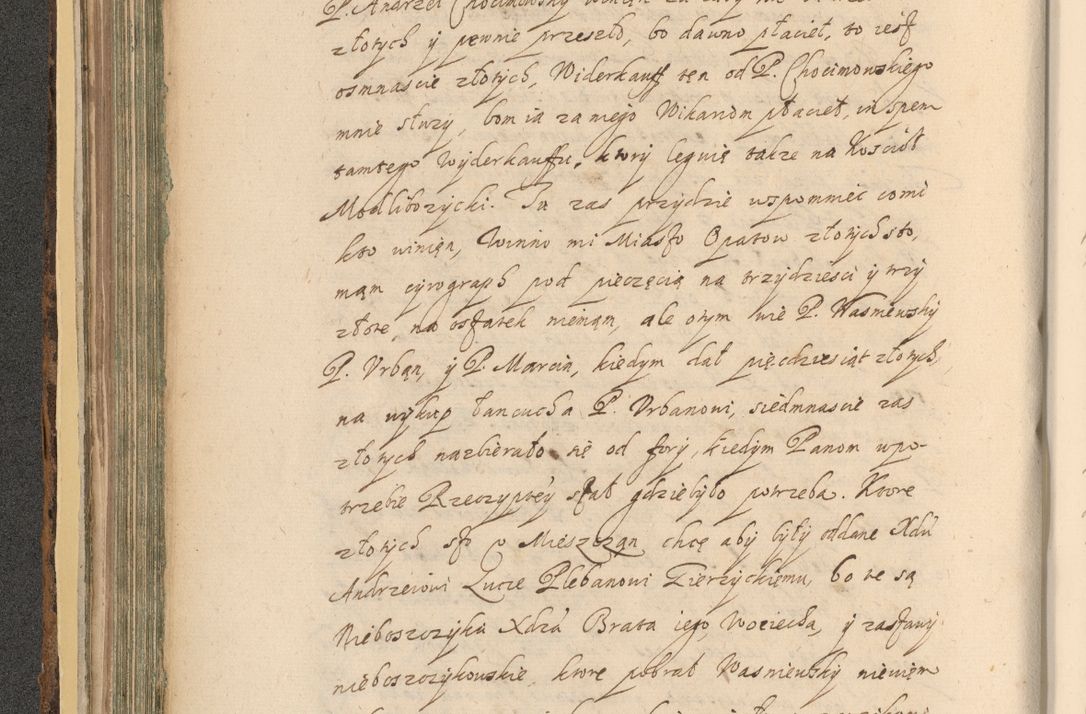 P. Andrzei Chocimowsky winięn
złotych ÿ pewnie przeszło, bo dawno płacieł, to iest
osmnascie złotych, Widerkauff ten od P. Chocimowskiego
mnie słuzy, bom ia za niego Wikariom płacieł, in spem
tamtego Wÿderkauffu, ktorÿ leguię takze na Kosciół
Modliborzÿcki. Tu zas przÿdzie wspomniec co mi
kto winięn, Winno mi Miasto Opatow złotych sto,
mąm cÿrograph pod pieczęcią na trzÿdziesci ÿ trzÿ
złote, na ostatek niemąm, ale o tym wie P. Wasniewskÿ
P. Vrbąn, ÿ P. Marcin, kiedym dał pięcdziesiąt złotych,
na wÿkup łancucha P. Vrbanowi, siedmnascie zas
złotych nazbierało się od forÿ, kiedÿm Panom w po-
trzebie Rzeczÿptéÿ słał gdzie bÿło potrzeba. Ktore
złotych sto v Mieszczan chcę abÿ bÿłÿ oddane Xdu
Andrzeiowi Lucze Plebanowi Gierzÿckiemu, bo te są
Nieboszczÿka Xdza Brata iego, Woÿciecha, ÿ zastawÿ
nieboszczÿkowskie, ktore pobrał Wasniewskÿ niewiem